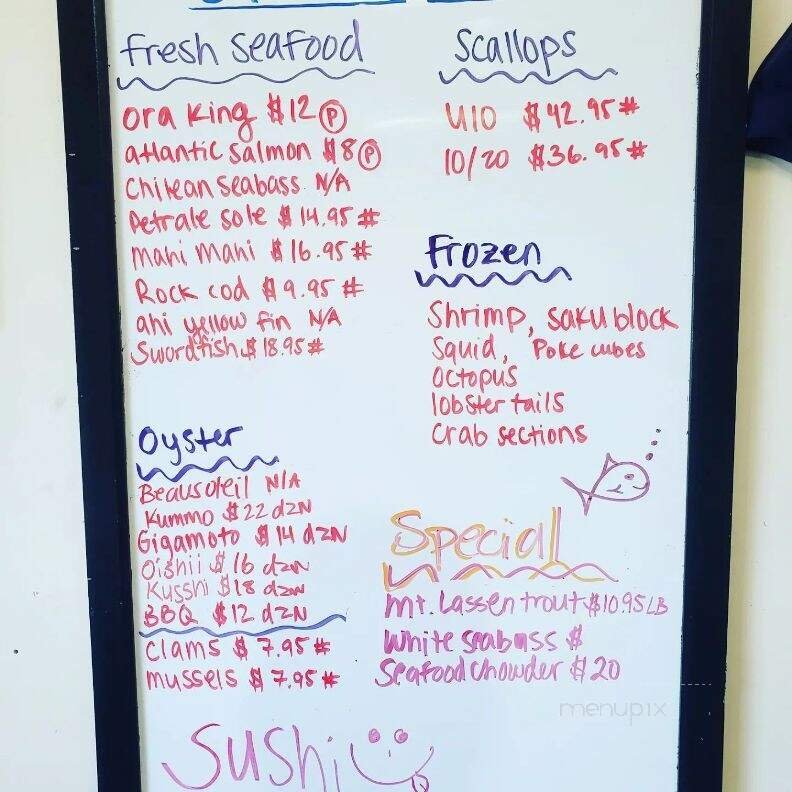 Fresh Seafood
Ora King $12 Ⓟ
atlantic salmon $8 Ⓟ
Chilean seabass N/A
Petrale sole $14.95 #
Mahi Mahi $16.95 #
Rock cod $9.95 #
ahi yellow fin N/A
Swordfish $18.95 #
Scallops
U10 $42.95 #
10/20 $36.95 #
Frozen
Shrimp, saku block
Squid, Poke cubes
Octopus
lobster tails
Crab sections
Oyster
Beausoleil N/A
Kummo $22 dzn
Gigamoto $14 dzn
Oishii $16 dzn
Kusshi $18 dzn
BBQ $12 dzn
Clams $7.95 #
mussels $7.95 #
Special
Mt. Lassen trout $10.95 LB
White seabass $
Seafood Chowder $20
menupix
Sushi